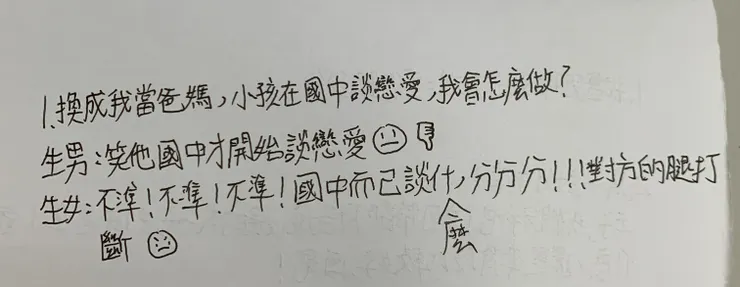 1.換成我當爸媽,小孩在國中談戀愛,我會怎麼做?
生男:笑他國中才開始談戀愛
生女:不準!不準!不準!國中而已談什麼,分分分!!!對方的腿打
斷